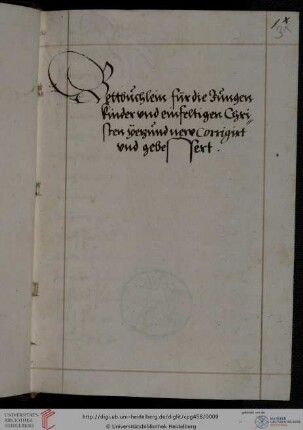 1x
3
Bettbüchlein für die Jungen
kinder vnd einfeltigen Chri-
sten yetzund new Corrigirt
vnd gebessert.
UNIVERSITÄTS-
BIBLIOTHEK
HEIDELBERG
http://digi.ub.uni-heidelberg.de/diglit/cpg458/0009
© Universitätsbibliothek Heidelberg